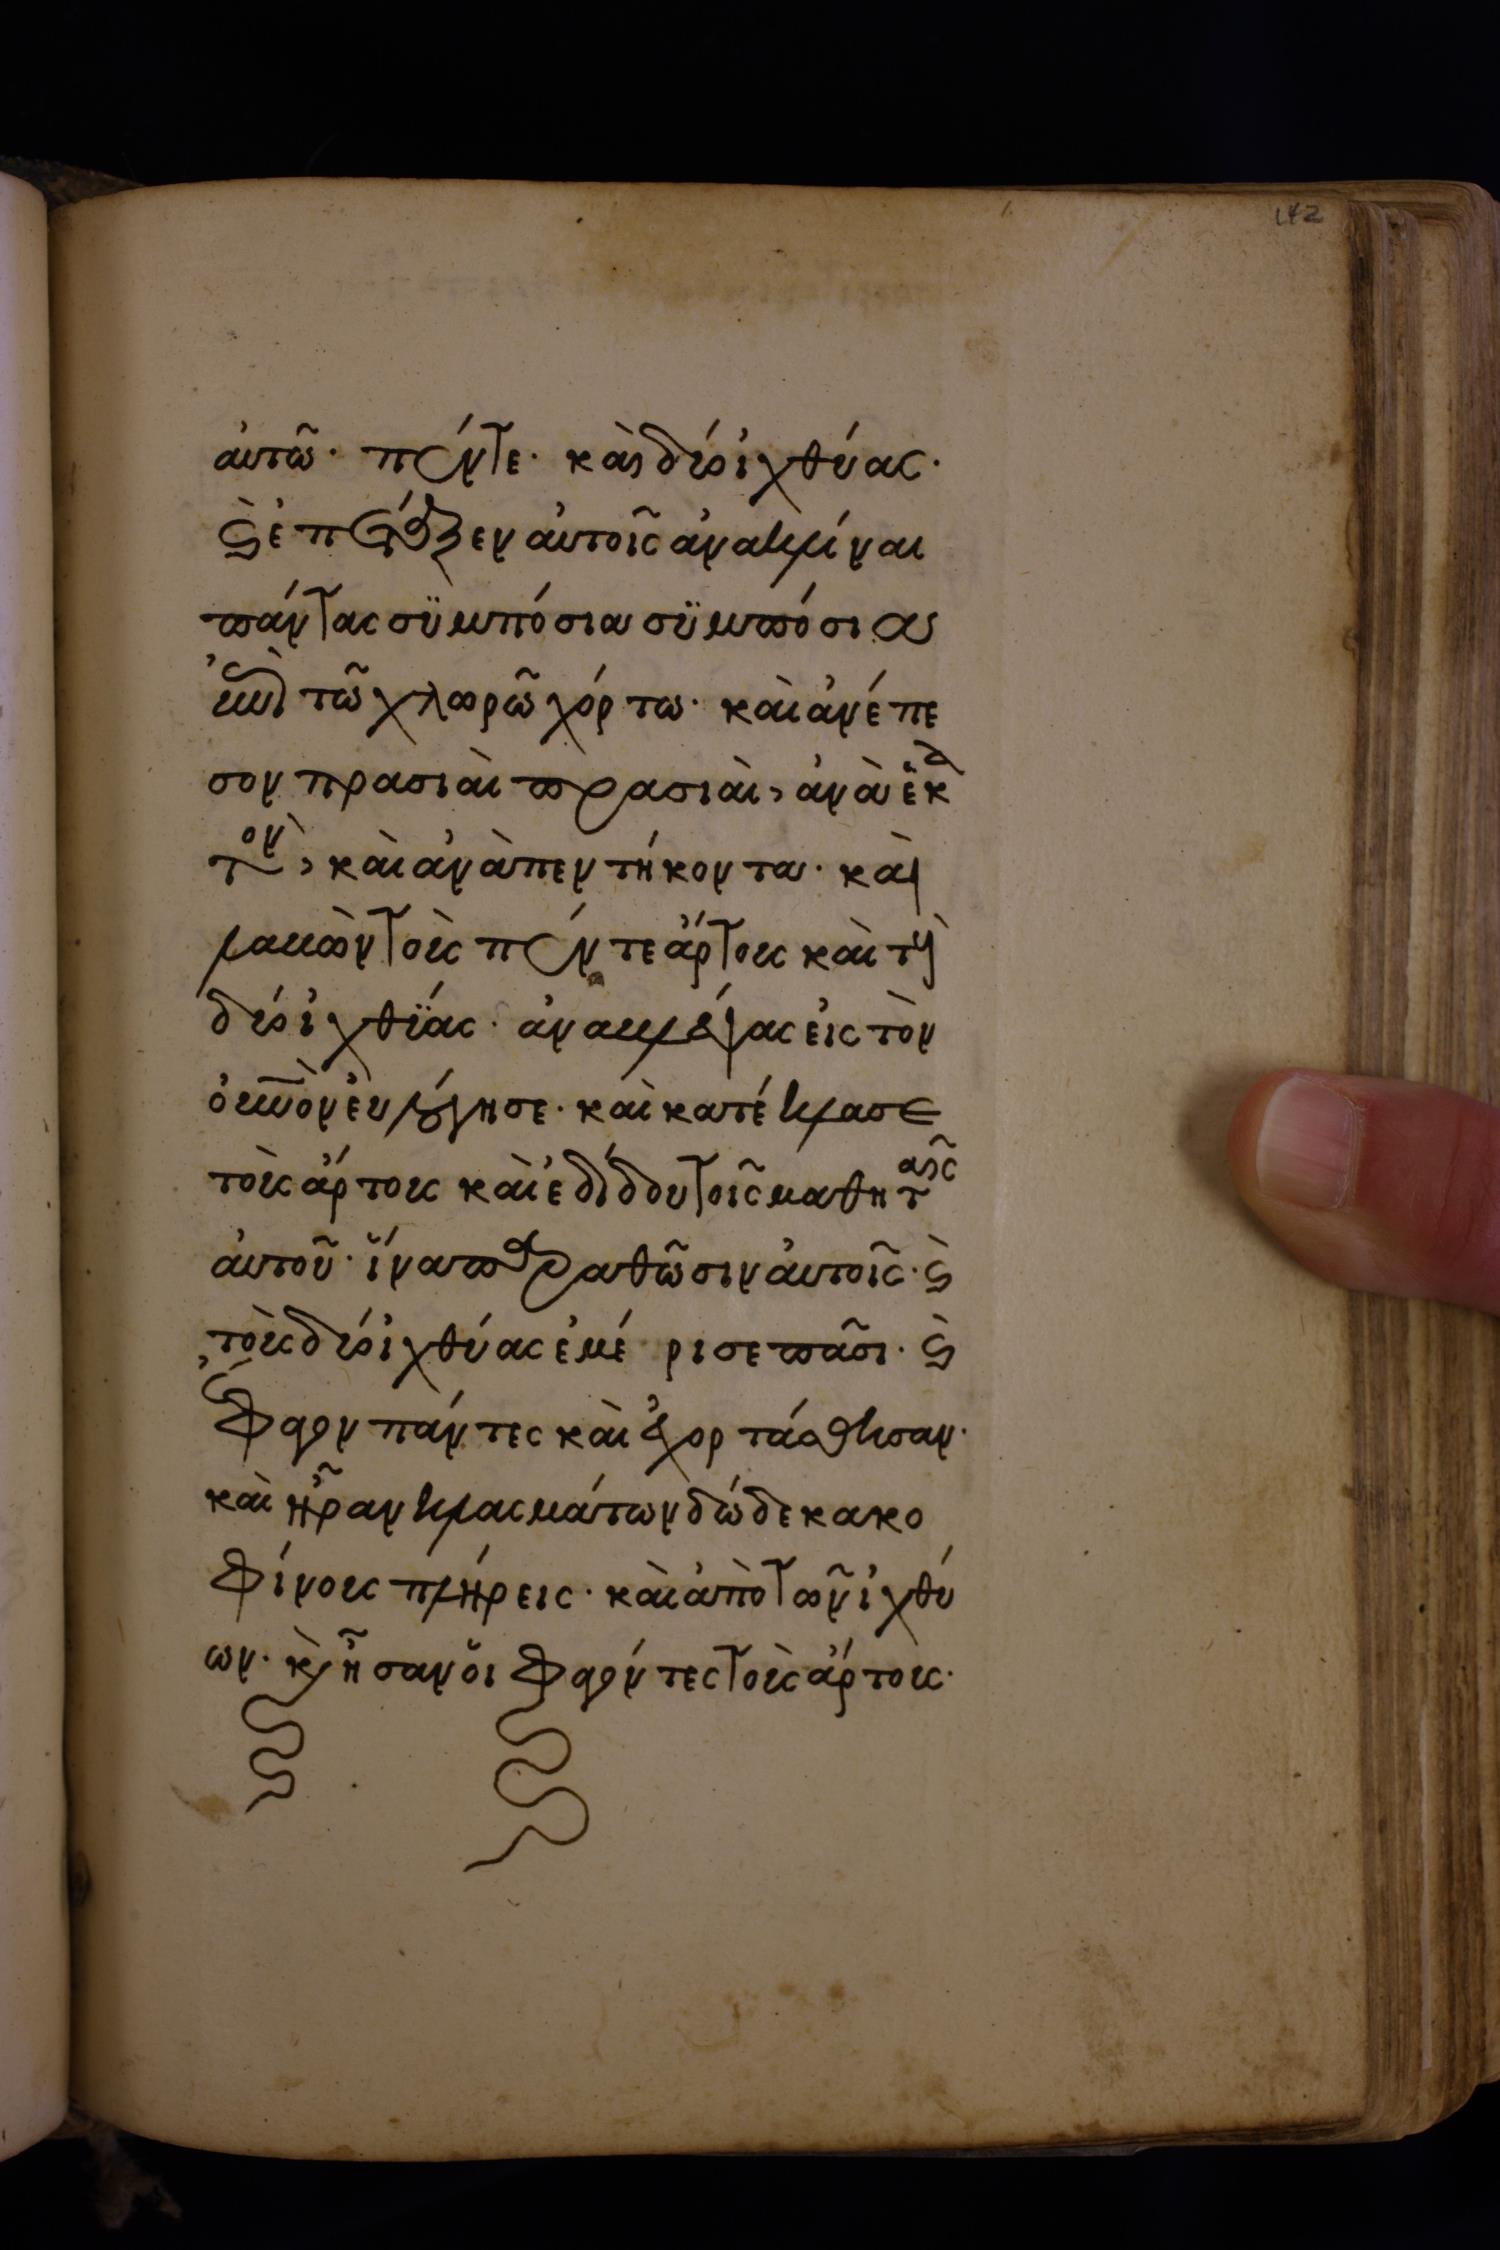 142
αὐτῶ· πέντε· καὶ δύο ἰχθύας·
ϛ̀ ἐπέταξεν αὐτοῖς ἀνακλίναι
πάντας σϋμπόσια σϋμπόσια
ἐπὶ τῶ χλωρῶ χόρτω· καὶ ἀνέπε
σον πρασιαὶ πρασιαὶ, ἀνὰ ἑκα
τὸν, καὶ ἀνὰ πεντήκοντα· καὶ
λαβὼν τοὺς πέντε ἄρτους καὶ τοὺς
δύο ἰχθϋάς· ἀναβλέψας εἰς τὸν
οὐνὸν ἐυλόγησε· καὶ κατέκλασε
τοὺς ἄρτους καὶ ἐδίδου τοῖς μαθηταῖς
αὐτοῦ· ἵνα παραθῶσιν αὐτοῖς· ϛ̀
τοὺς δύο ἰχθύας ἐμέρισε πᾶσι· ϛ̀
ἔφαγον πάντες καὶ ἐχορτάσθησαν·
καὶ ἦραν κλασμάτων δώδεκα κο
φίνους πλήρεις· καὶ ἀπὸ τῶν ἰχθύ
ων· κὶ ἦσαν ὅι φαγόντες τοὺς ἄρτους·